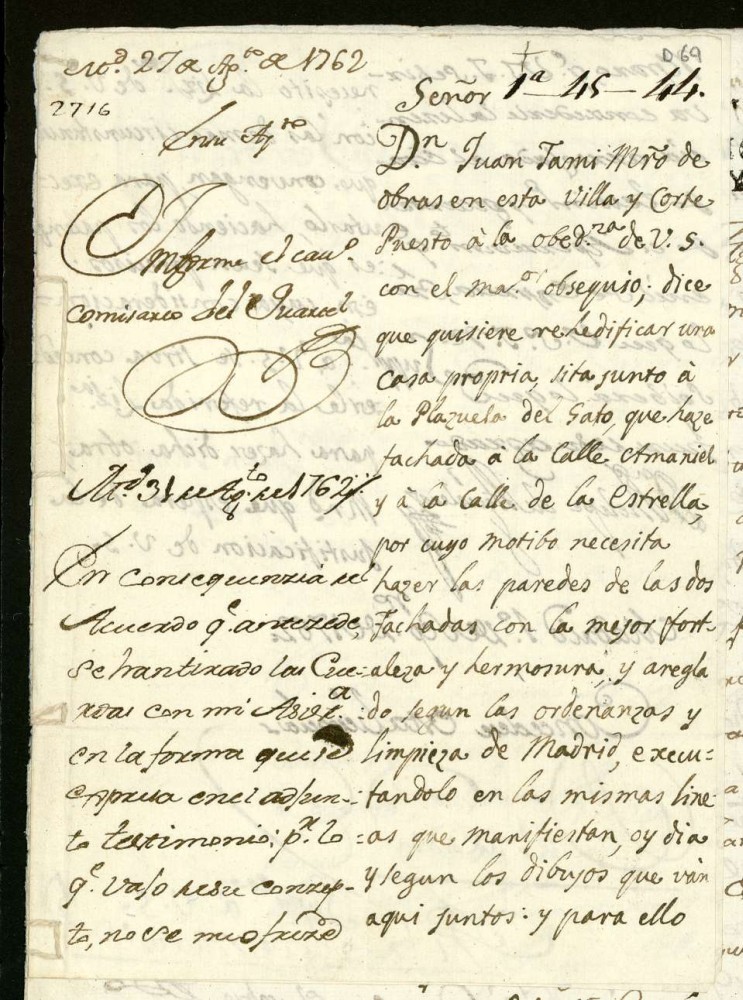 Md. 27 de Agto de 1762
2716
En su Ayto
Informe el cavo
comisario del Quartel
Md. 31 de Agto de 1762//
En consequenzia del
Acuerdo qe. antezede,
se han tirado las Cue=
rdas con mi Asista
en la forma que se
expresa en el adjun=
to testimonio; pr. lo
qe. vajo de su conzep-
to, no se me ofreze
D 69
Señor 1a - 45 - 44.
Dn Juan Tami Mro de
obras en esta Villa y Corte
Puesto à la obed.za de V. S.
con el ma.or obsequio; dice
que quisiere rehedificar una
casa propria, sita junto à
la Plazuela del Gato, que haze
fachada à la Calle Amaniel
y à la Calle de la Estrella,
por cuyo motibo necesita
hazer las paredes de las dos
Fachadas con la mejor fort=
aleza y hermosura, y aregla
=do segun las ordenanzas y
limpieza de Madrid, execu=
tandolo en las mismas line=
=as que manifiestan, oy dia
y segun los dibujos que ván
aqui juntos: y para ello